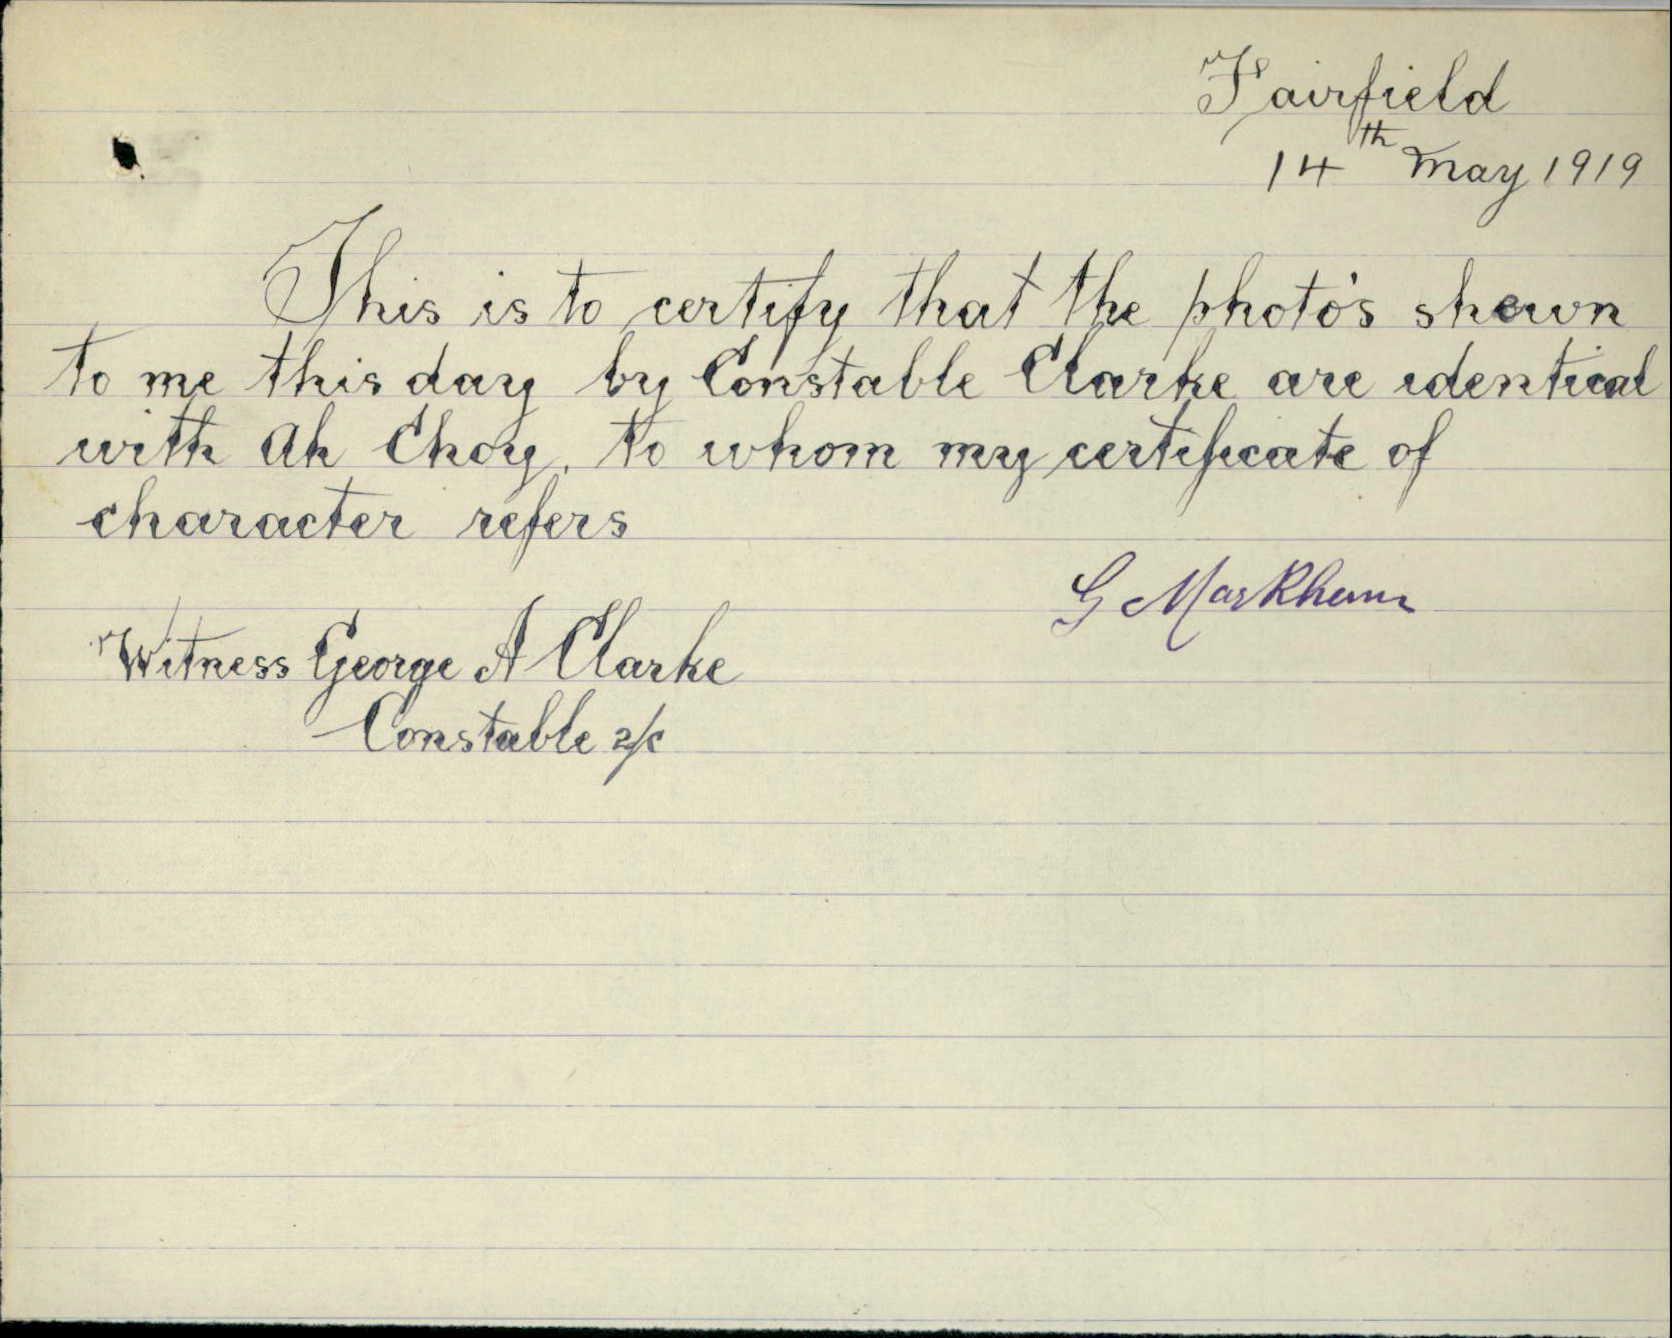 Fairfield
14th May 1919
This is to certify that the photo's shewn
to me this day by Constable Clarke are identical
with Ah Choy, to whom my certificate of
character refers
G Markham
Witness George A Clarke
Constable 2/c